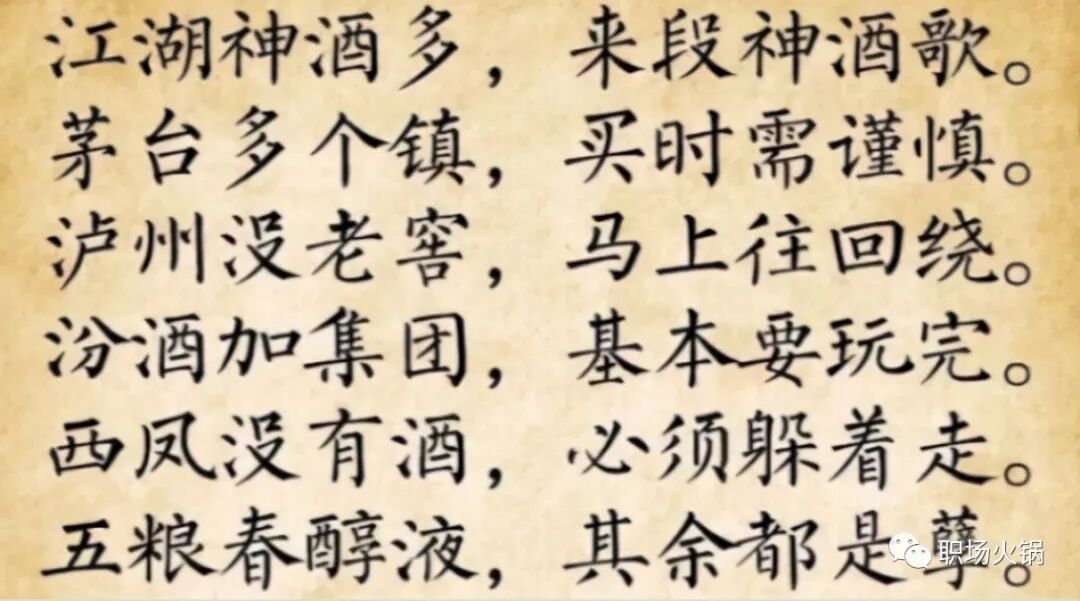 江湖神酒多，来段神酒歌。
茅台多个镇，买时需谨慎。
泸州没老窖，马上往回绕。
汾酒加集团，基本要玩完。
西凤没有酒，必须躲着走。
五粮春醇液，其余都是孽。
职场火锅